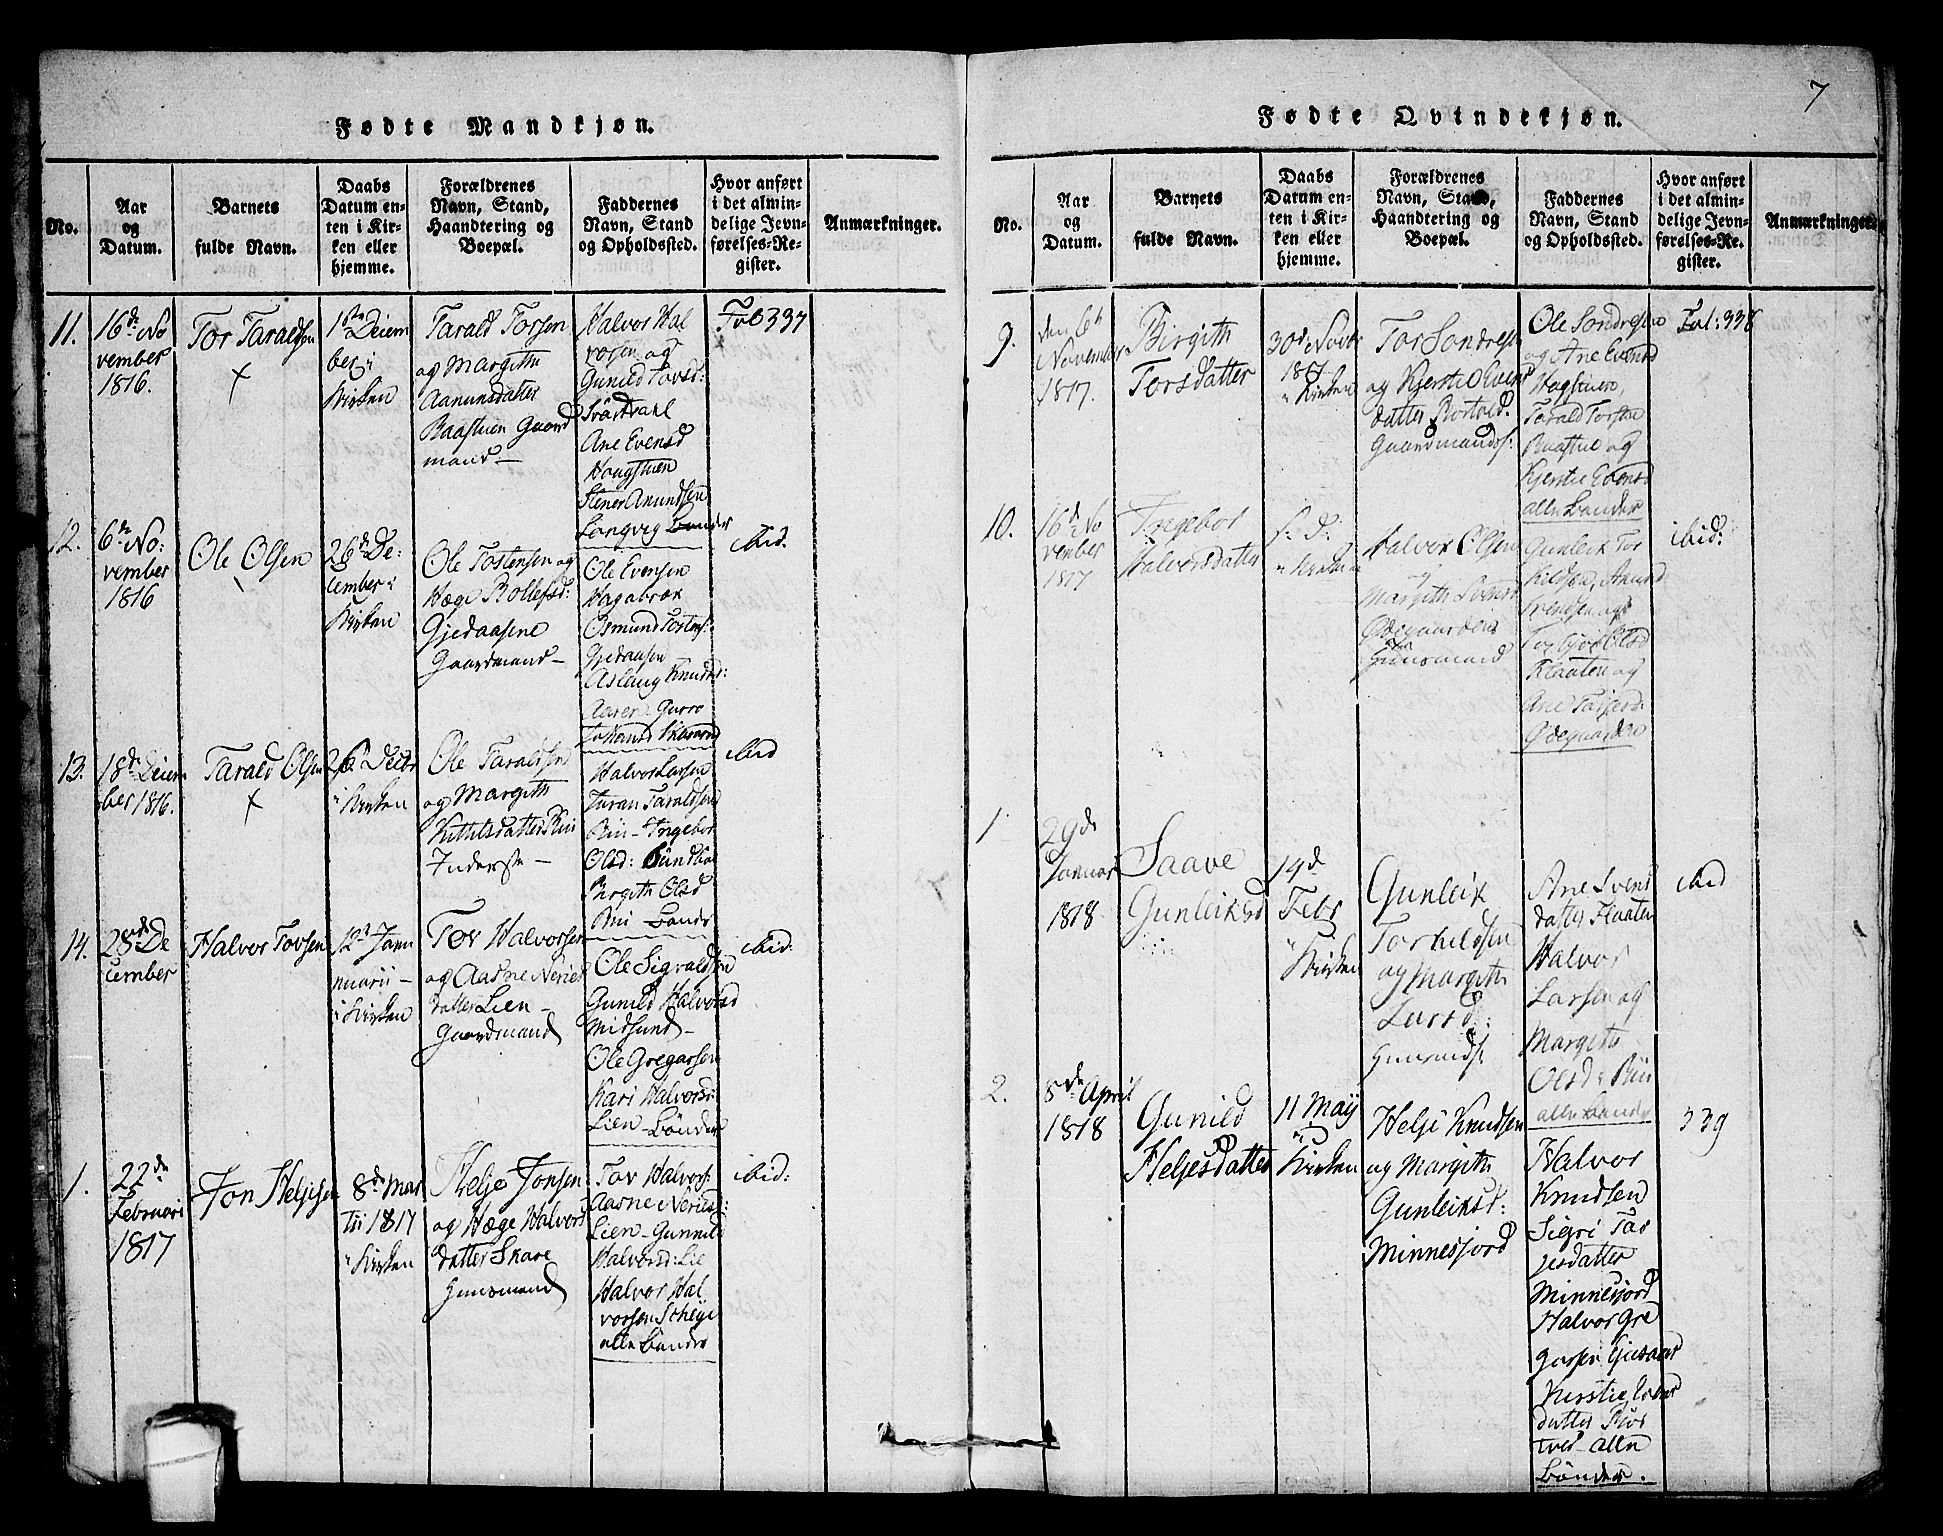 7
Fødte Mandkjøn.
No.
Aar
og
Datum.
Barnets
fulde Navn.
Daabs
Datum en-
ten i Kir-
ken eller
hjemme.
Forældrenes
Navn, Stand,
Haandtering og
Boepæl.
Faddernes
Navn, Stand
og Opholdssted.
Hvor anført
i det almin-
delige Jevn-
førelses-Re-
gister.
Anmærkninger.
11.
16de No
vember
1816.
Tor Taraldsen
+
1ste Decem
ber i
Kirken
Tarald Torsen
og Margith
Aanunsdatter
Raastuen Gaard
mand
Halvor Hal
vorsen og
Gunild Torsd:
Svartdahl
Ane Evensd
Haugstuen
Stener Anundsen
Longvig Bønder
Fol 337
12.
6de No:
vember
1816
Ole Olsen
26de De:
cember i
Kirken
Ole Tostensen og
Hæge Rollefsd:
Gjedaasene
Gaardmand
Ole Evensen
Hagabræk
Osmund Tostens:
Gjedaasen
Aslaug Knuds:
Gurro
ibid.
13.
18de Decem
ber 1816.
Tarald Olsen
+
26 Decbr
i Kirken
Ole Taraldsen
og Margith
Kittelsdatter Rui
Inderste
Halvor Larsen
Juran Taraldsen
Rui - Ingebor
Olsd: Sundbø
Birgith Olsd
Rui Bønder
ibid
14.
28de De
cember
Halvor Tovsen
12te Jan
nuarii
i Kirken
Tov Halvorsen
og Aasne Neries
datter Lien
Gaardmand
Ole Sigvaldsen
Gunild Halvorsd
Midsund
Ole Gregarsen
Kari Halvorsd:
Lien - Bønder
ibid:
1.
22de
Februari
1817
Jon Heljesen
8de Mar
tii 1817
i Kirken
Helje Jonsen
og Hæge Halvors
datter Skare
Huusmand
Tov Halvors:
Aasne Neriesd:
Lien - Gunnild
Halvorsd: Lie
Halvor Hal
vorsen Scheje
alle Bønder
ibid:
Fødte Qvindekjøn.
No.
Aar
og
Datum.
Barnets
fulde Navn.
Daabs
Datum en-
ten i Kir-
ken eller
hjemme.
Forældrenes
Navn, Stand,
Haandtering og
Boepæl.
Faddernes
Navn, Stand
og Opholdssted.
Hvor anført
i det almin-
delige Jevn-
førelses-Re-
gister.
Anmærkninger.
9.
den 6te
November
1817.
Birgith
Torsdatter
30d Novbr
1817
i Kirken
Tor Sondresen
og Kjerstie Evens
datter Rortved.
Gaardmandsf:
Ole Sondresen
og Ane Evensd
Hagstuen,
Tarald Torsen
Raastue og
Kjerstie Evensd
alle Bønder
Fol: 338
10.
16de No
vember
1817
Ingebor
Halvorsdatter
s: d:
i Kirken
Halvor Olsen
og
Margith Svensd
Ødegaarden
Huusmand
Gunleik Tor
kildsen, Aanund
Svendsen og
Torbjør Olsd
Flaaten og
Ane Tarjersd
Ødegaarden
ibid:
1
29de
Januar
1818
Saave
Gunleiksd
19d
Febr
i Kirken
Gunleik
Torkildsen
og Margith
Larsd:
Huusmdsf:
Ane Svens
datter Flaaten
Halvor
Larsen og
Margith
Olsd: Rui
alle Bønder
ibid
2.
8de April
1818
Gunild
Heljesdatter
11 May
i
Kirken
Helje Knudsen
og Margith
Gunleiksd:
Minnesjord
Halvor
Knudsen
Sigri Tar
jesdatter
Minnesjord
Halvor Gre
garsen
Kierstie Evens
datter Rør
tved alle
Bønder.
339